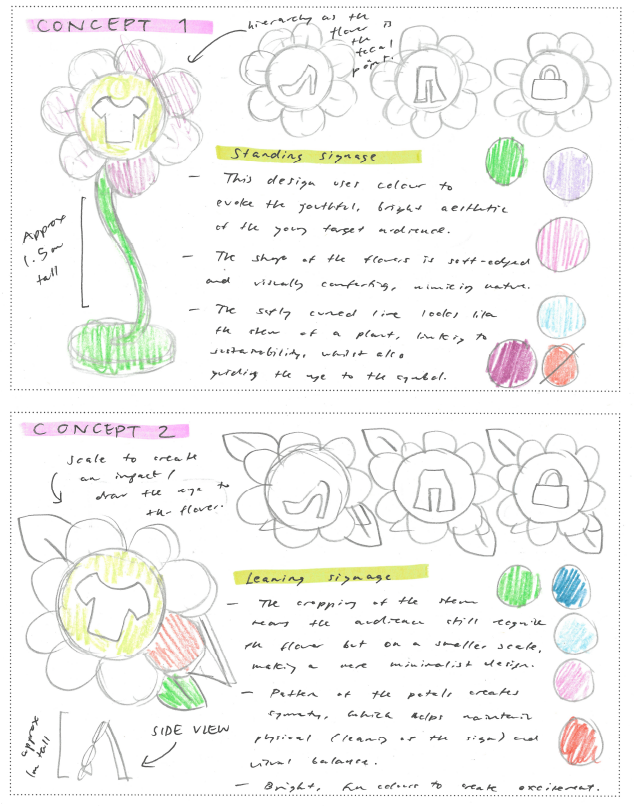 CONCEPT 1
hierarchy as the
flower is
the
focal
point.
Standing signage
- This design uses colour to
evoke the youthful, bright aesthetic
of the young target audience.
- The shape of the flowers is soft-edged
and visually comforting, mimicing nature.
- The softly curved line looks like
the stem of a plant, linking to
sustainability, whilst also
guiding the eye to the symbol.
Approx
1.5m
tall
CONCEPT 2
Scale to create
an impact /
draw the eye to
the flower.
Leaning signage
- The cropping of the stem
means the audience still recognise
the flower but on a smaller scale,
making a more minimalist design.
- Pattern of the petals creates
symmetry, which helps maintain
physical (leaning as the sign) and
visual balance.
- Bright, fun colours to create excitement.
approx
1m tall
SIDE VIEW